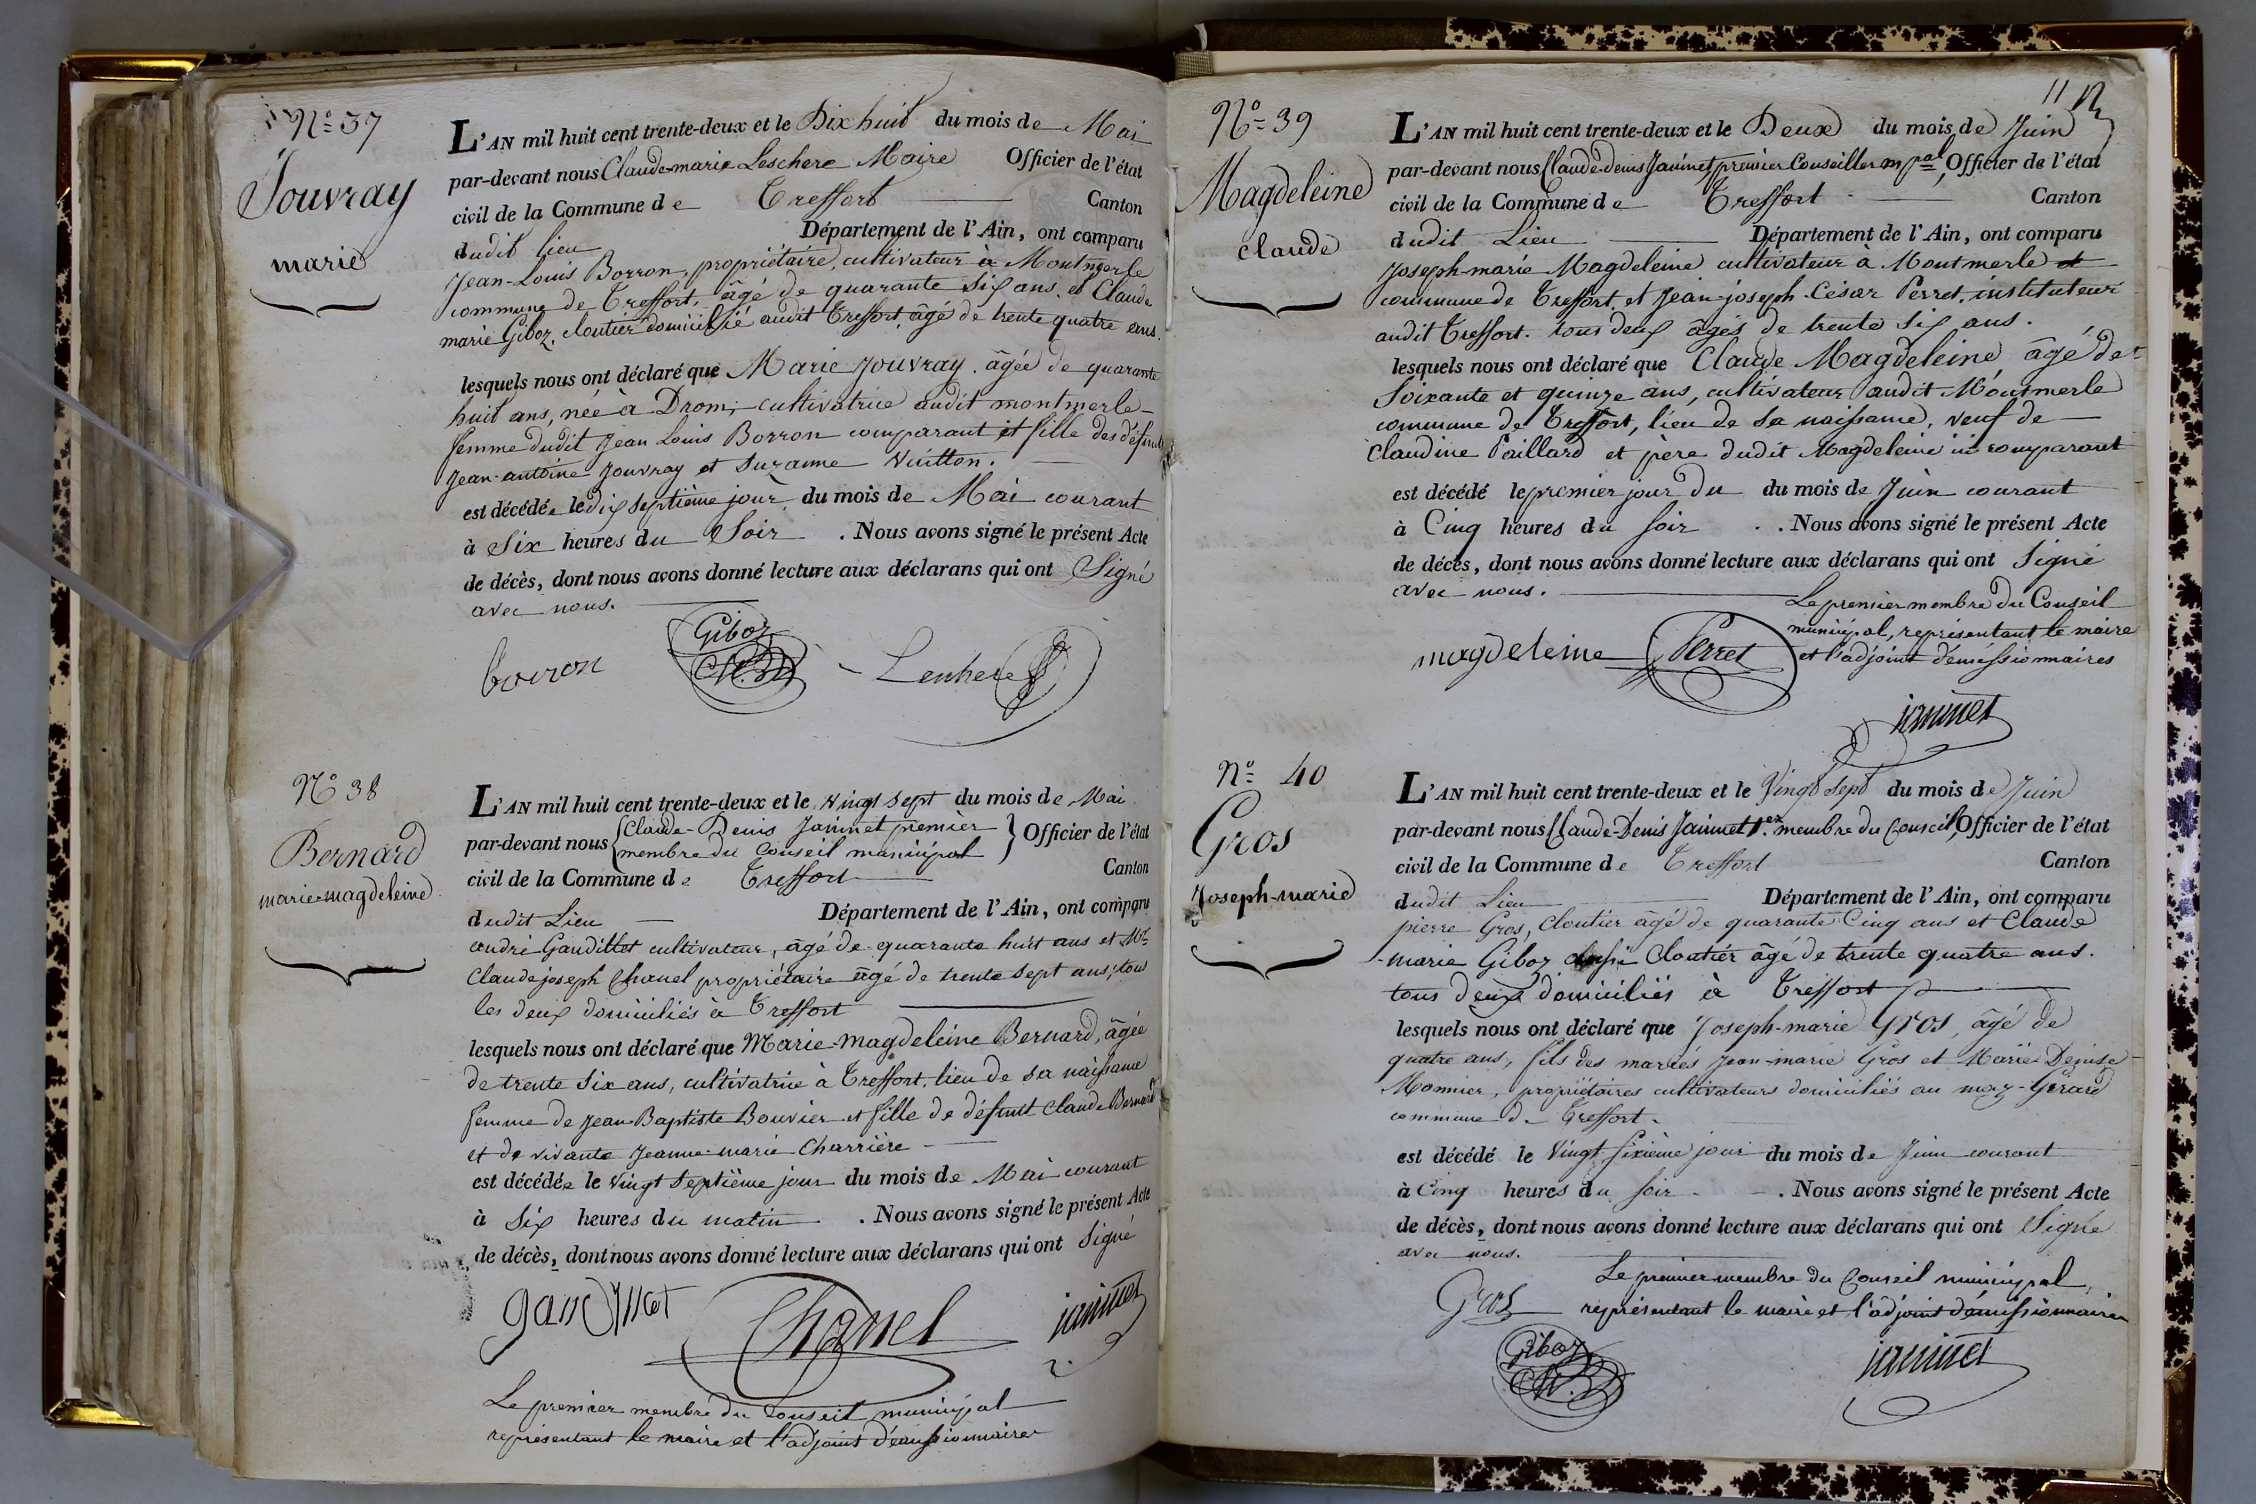 N° 37
Jouvray
marie
L'AN mil huit cent trente-deux et le Dix huit du mois de Mai
par-devant nous Claude-marie Leschere Maire Officier de l'état
civil de la Commune de Treffort Canton
dudit lieu Département de l'Ain, ont comparu
Jean-Louis Borron, propriétaire, cultivateur à Montmerle
commune de Treffort, âgé de quarante six ans, et Claude
marie Giboz, cloutier domicilié audit Treffort, âgé de trente quatre ans.
lesquels nous ont déclaré que Marie Jouvray, âgée de quarante
huit ans, née à Drom, cultivatrice audit montmerle
femme dudit Jean Louis Borron comparant et fille des défunts
Jean-antoine Jouvray et Suzanne Vuitton.
est décédée le dix septième jour du mois de Mai courant
à Six heures du Soir . Nous avons signé le présent Acte
de décès, dont nous avons donné lecture aux déclarans qui ont Signé
avec nous.
Giboz
borron
N° 38
Bernard
marie-magdeleine
L'AN mil huit cent trente-deux et le vingt sept du mois de Mai
par-devant nous Claude-Denis Janinet premier
membre du Conseil municipal Officier de l'état
civil de la Commune de Treffort Canton
dudit Lieu Département de l'Ain, ont comparu
andré Gandillet cultivateur, âgé de quarante huit ans et Mr
Claude joseph Chanel propriétaire âgé de trente sept ans, tous
les deux domiciliés à Treffort
lesquels nous ont déclaré que Marie-magdeleine Bernard, âgée
de trente six ans, cultivatrice à Treffort, lieu de sa naissance
femme de Jean Baptiste Bouvier et fille de défunt Claude Bernard
et de vivante Jeanne-marie Charrière
est décédée le vingt septième jour du mois de Mai courant
à Six heures du matin . Nous avons signé le présent Acte
de décès, dont nous avons donné lecture aux déclarans qui ont Signé
gandillet Chanel janinet
Le premier membre du Conseil municipal
représentant le maire et l'adjoint démissionnaires
11
N° 39
Magdeleine
claude
L'AN mil huit cent trente-deux et le Deux du mois de Juin
par-devant nous Claude-denis Janinet premier Conseiller mpal, Officier de l'état
civil de la Commune de Treffort Canton
dudit Lieu Département de l'Ain, ont comparu
Joseph-marie Magdeleine cultivateur à Montmerle
commune de Treffort et Jean-joseph-César Perret, instituteur
audit Treffort. tous deux âgés de trente six ans.
lesquels nous ont déclaré que Claude Magdeleine âgé de
Soixante et quinze ans, cultivateur audit Montmerle
commune de Treffort, lieu de sa naissance, veuf de
Claudine Paillard et père dudit Magdeleine ici comparant
est décédé le premier jour du du mois de Juin courant
à Cinq heures du soir . Nous avons signé le présent Acte
de décès, dont nous avons donné lecture aux déclarans qui ont Signé
avec nous.
Le premier membre du Conseil
municipal, représentant le maire
et l'adjoint démissionnaires
magdeleine Perret
janinet
N° 40
Gros
Joseph-marie
L'AN mil huit cent trente-deux et le Vingt sept du mois de Juin
par-devant nous Claude-Denis Janinet 1er membre du Conseil, Officier de l'état
civil de la Commune de Treffort Canton
dudit Lieu Département de l'Ain, ont comparu
pierre Gros, Cloutier âgé de quarante Cinq ans et Claude
marie Giboz aussi Cloutier âgé de trente quatre ans.
tous deux domiciliés à Treffort
lesquels nous ont déclaré que Joseph-marie Gros, âgé de
quatre ans, fils des mariés Jean-marie Gros et Marie-Denise
Monnier, propriétaires cultivateurs domiciliés au maz-Gérard
commune de Treffort.
est décédé le Vingt sixième jour du mois de Juin courant
à Cinq heures du soir . Nous avons signé le présent Acte
de décès, dont nous avons donné lecture aux déclarans qui ont Signé
avec nous.
Le premier membre du Conseil municipal,
représentant le maire et l'adjoint démissionnaires
Gros
Giboz
janinet